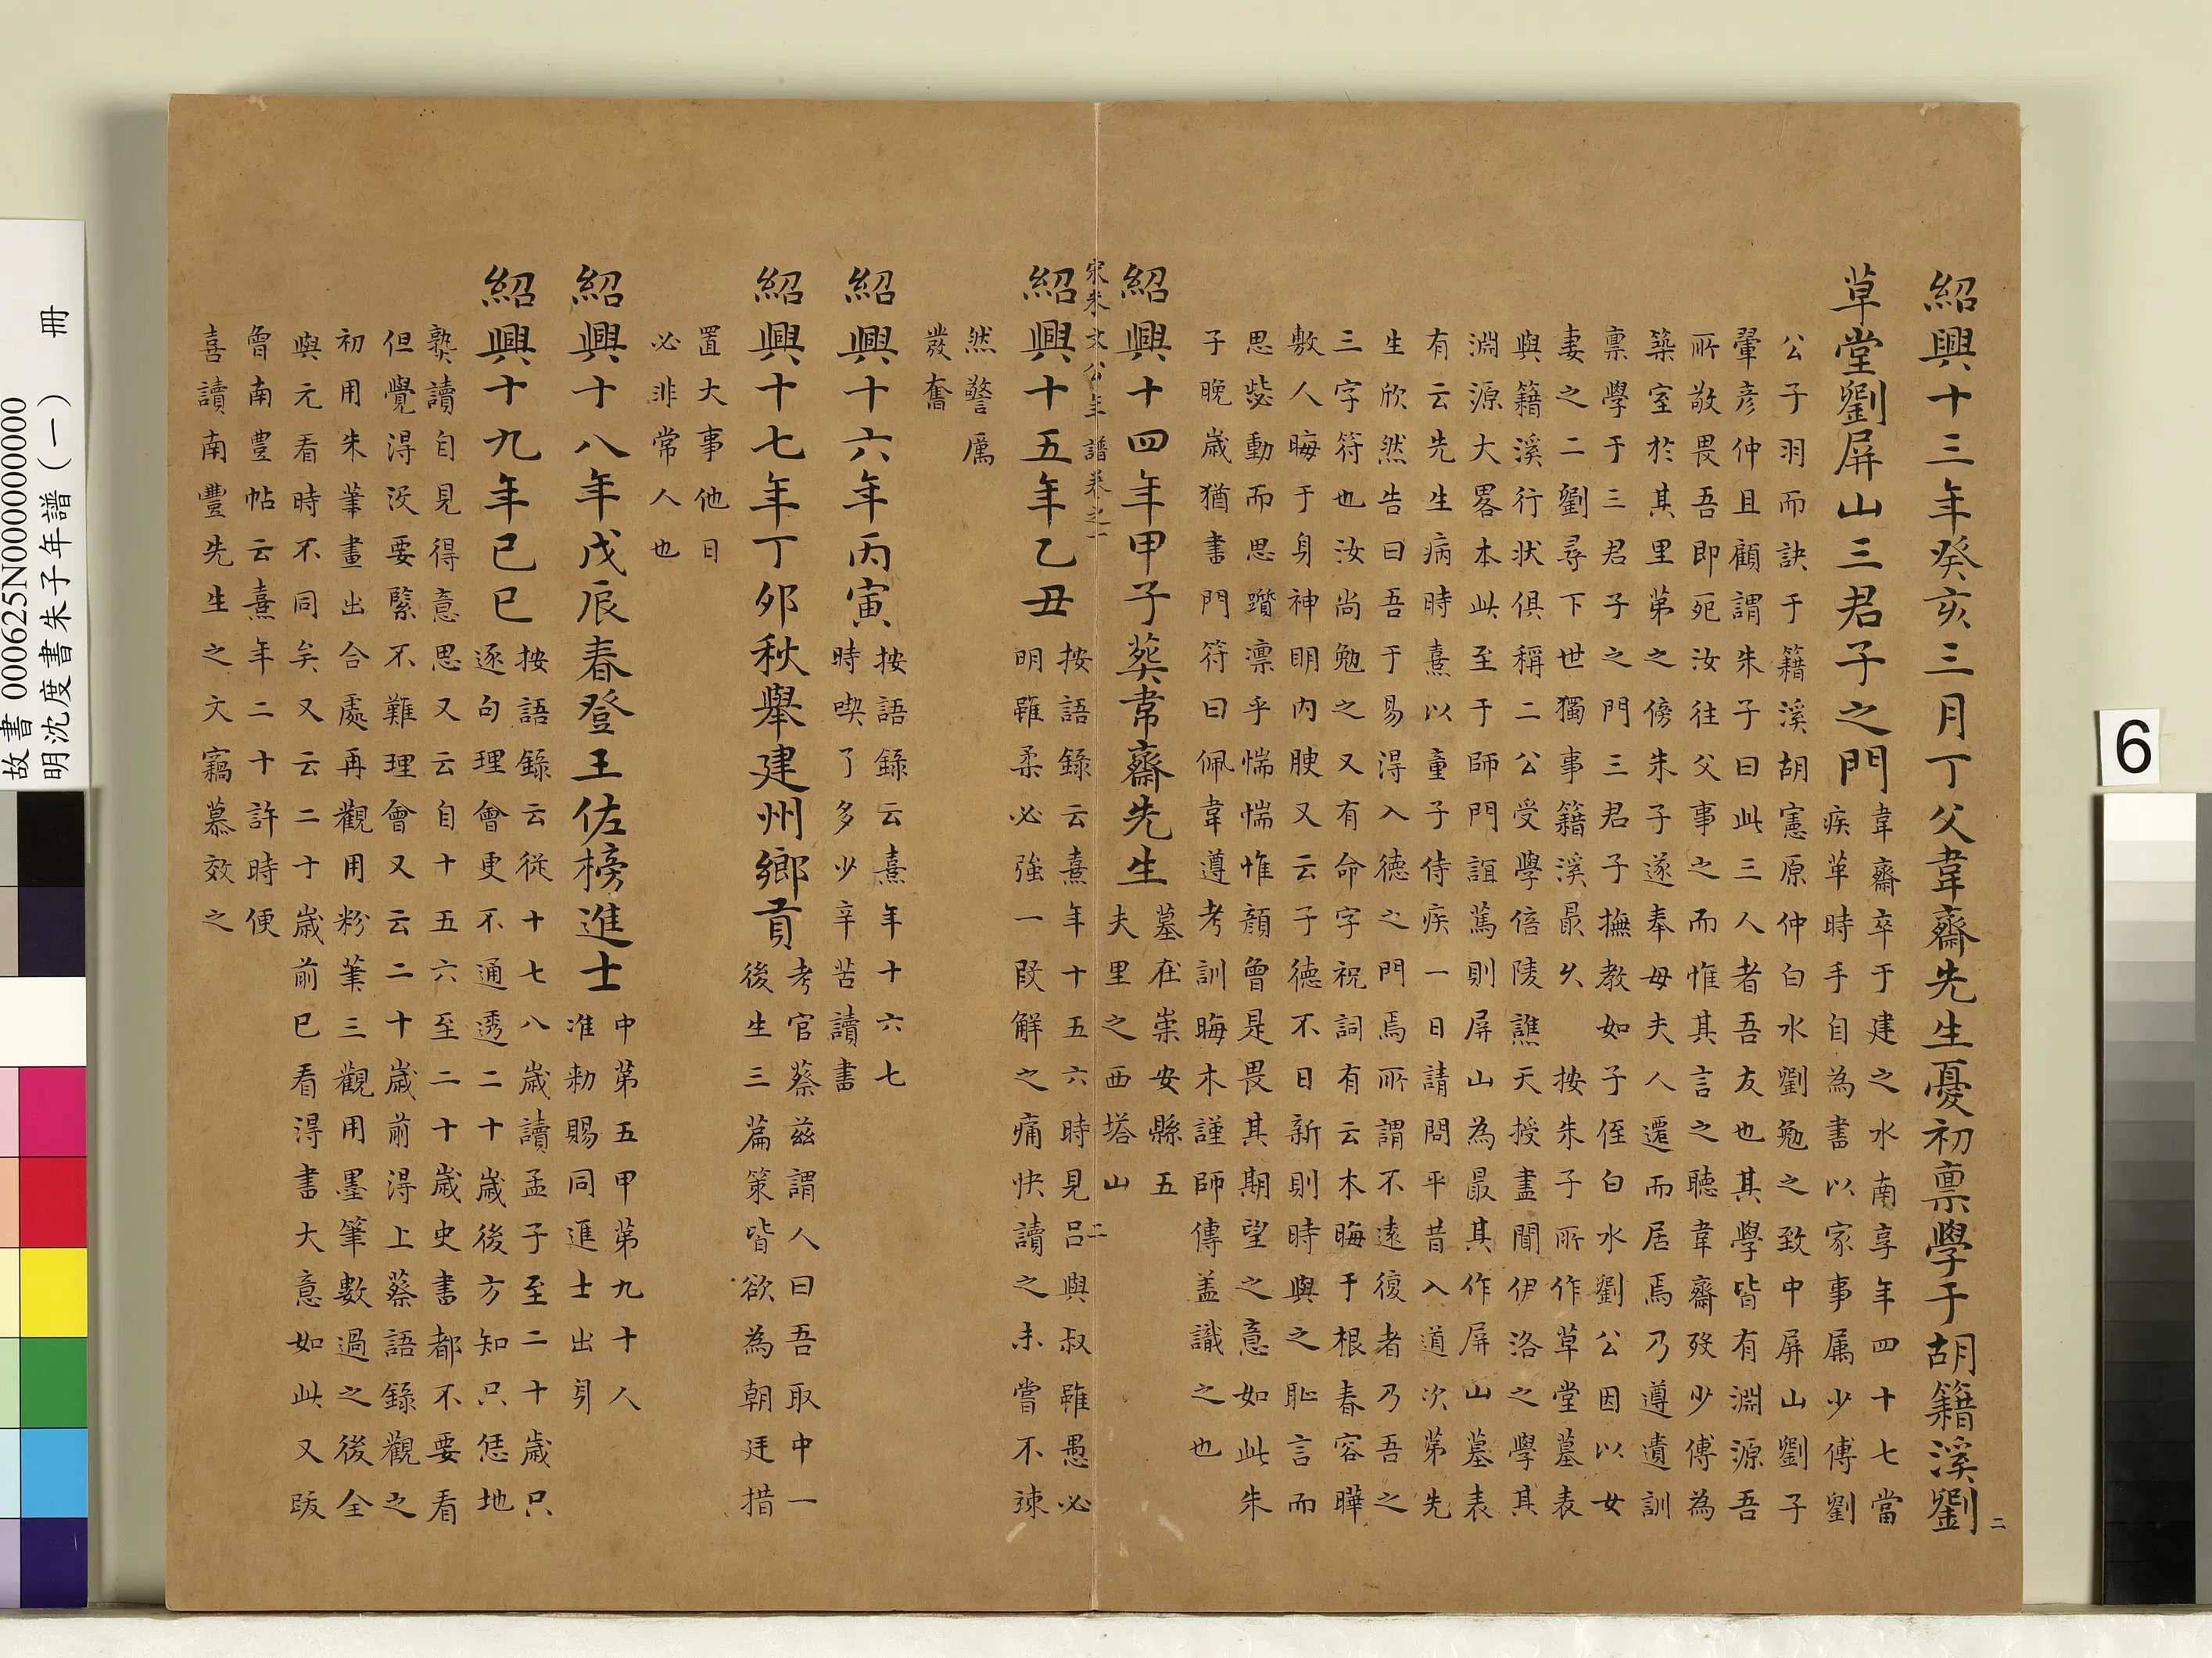 紹興十三年癸亥三月丁父韋齋先生憂初禀學于胡籍溪劉
草堂劉屏山三君子之門
韋齋卒于建之水南享年四十七當
疾革時手自為書以家事属少傅劉
公子羽而訣于籍溪胡憲原仲白水劉勉之致中屏山劉子
翬彥仲且顧謂朱子曰此三人者吾友也其學皆有淵源吾
所敬畏吾即死汝往父事之而惟其言之聽韋齋殁少傅為
築室於其里第之傍朱子遂奉母夫人遷而居焉乃遵遺訓
禀學于三君子之門三君子撫教如子侄白水劉公因以女
妻之二劉尋下世獨事籍溪最久 按朱子所作草堂墓表
與籍溪行狀俱稱二公受學倍陵譙天授盡聞伊洛之學其
淵源大畧本此至于師門誼篤則屏山為最其作屏山墓表
有云先生病時熹以童子侍疾一日請問平昔入道次第先
生欣然告曰吾于易得入德之門焉所謂不遠復者乃吾之
三字符也汝尚勉之又有命字祝詞有云木晦于根春容曄
敷人晦于身神明内腴又云子德不日新則時與之恥言而
思毖動而思躓凛乎惴惴惟顏曾是畏其期望之意如此朱
子晚歲猶書門符曰佩韋遵考訓晦木謹師傳盖識之也
紹興十四年甲子葬韋齋先生
墓在崇安縣五
夫里之西塔山
宋朱文公年譜卷之一
二
紹興十五年乙丑
按語錄云熹年十五六時見吕與叔雖愚必
明雖柔必強一段解之痛快讀之未嘗不竦
然警厲
發奮
紹興十六年丙寅
按語錄云熹年十六七
時喫了多少辛苦讀書
紹興十七年丁夘秋舉建州鄉貢
考官蔡兹謂人曰吾取中一
後生三篇策皆欲為朝廷措
置大事他日
必非常人也
紹興十八年戊辰春登王佐榜進士
中第五甲第九十人
准勑賜同進士出身
紹興十九年己巳
按語錄云從十七八歲讀孟子至二十歲只
逐句理會更不通透二十歲後方知只恁地
熟讀自見得意思又云自十五六至二十歲史書都不要看
但覺得没要緊不難理會又云二十歲前得上蔡語錄觀之
初用朱筆畫出合處再觀用粉筆三觀用墨筆數過之後全
與元看時不同矣又云二十歲前已看得書大意如此又跋
曾南豊帖云熹年二十許時便
喜讀南豐先生之文竊慕效之
二
故書 000625N000000000
明沈度書朱子年譜（一） 冊
6